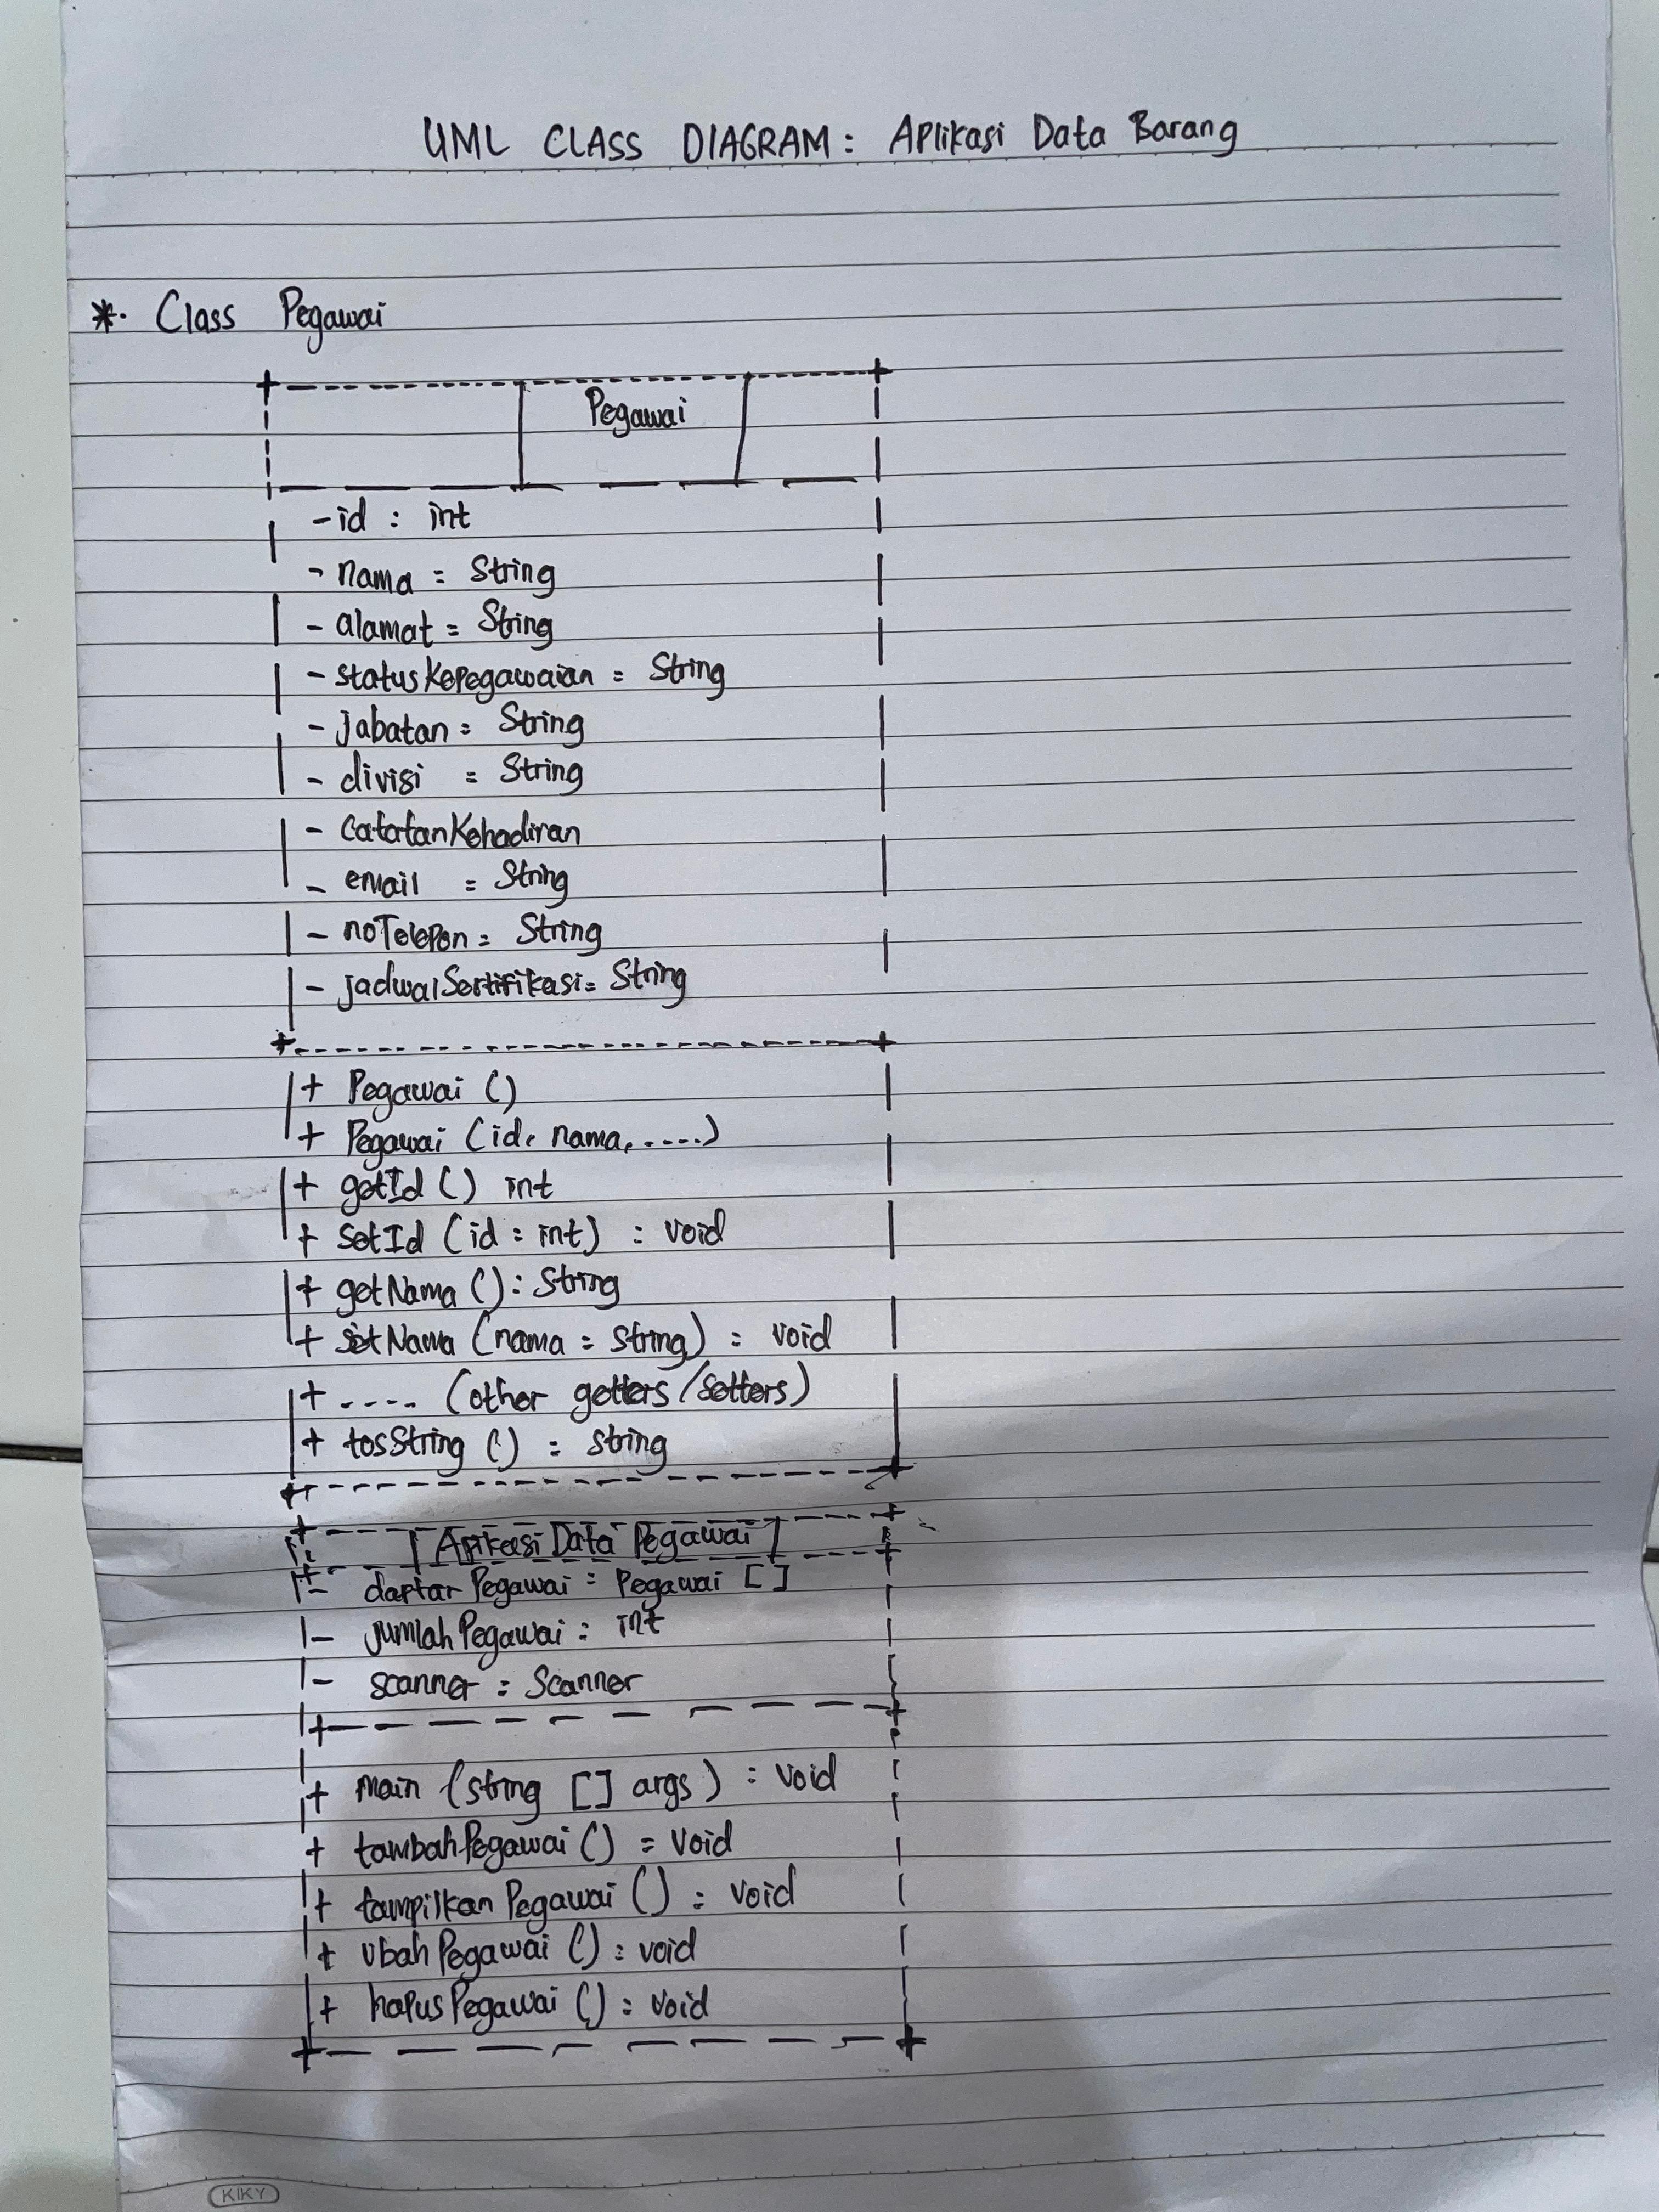 UML CLASS DIAGRAM : Aplikasi Data Barang
*. Class Pegawai
Pegawai
- id : int
- nama = String
- alamat = String
- statusKepegawaian = String
- jabatan = String
- divisi = String
- catatanKehadiran
- email = String
- noTelepon = String
- jadwalSertifikasi = String
+ Pegawai ()
+ Pegawai (id, nama, .....)
+ getId () int
+ SetId (id : int) : void
+ getNama () : String
+ setNama (nama = string) : void
+ .... (other getters/setters)
+ tosString () = string
Aplikasi Data Pegawai
- daftar Pegawai = Pegawai []
- jumlahPegawai : int
- scanner = Scanner
+ main (string [] args) : void
+ tambahPegawai () = void
+ tampilkan Pegawai () : void
+ ubah Pegawai () : void
+ hapus Pegawai () : void
KIKY